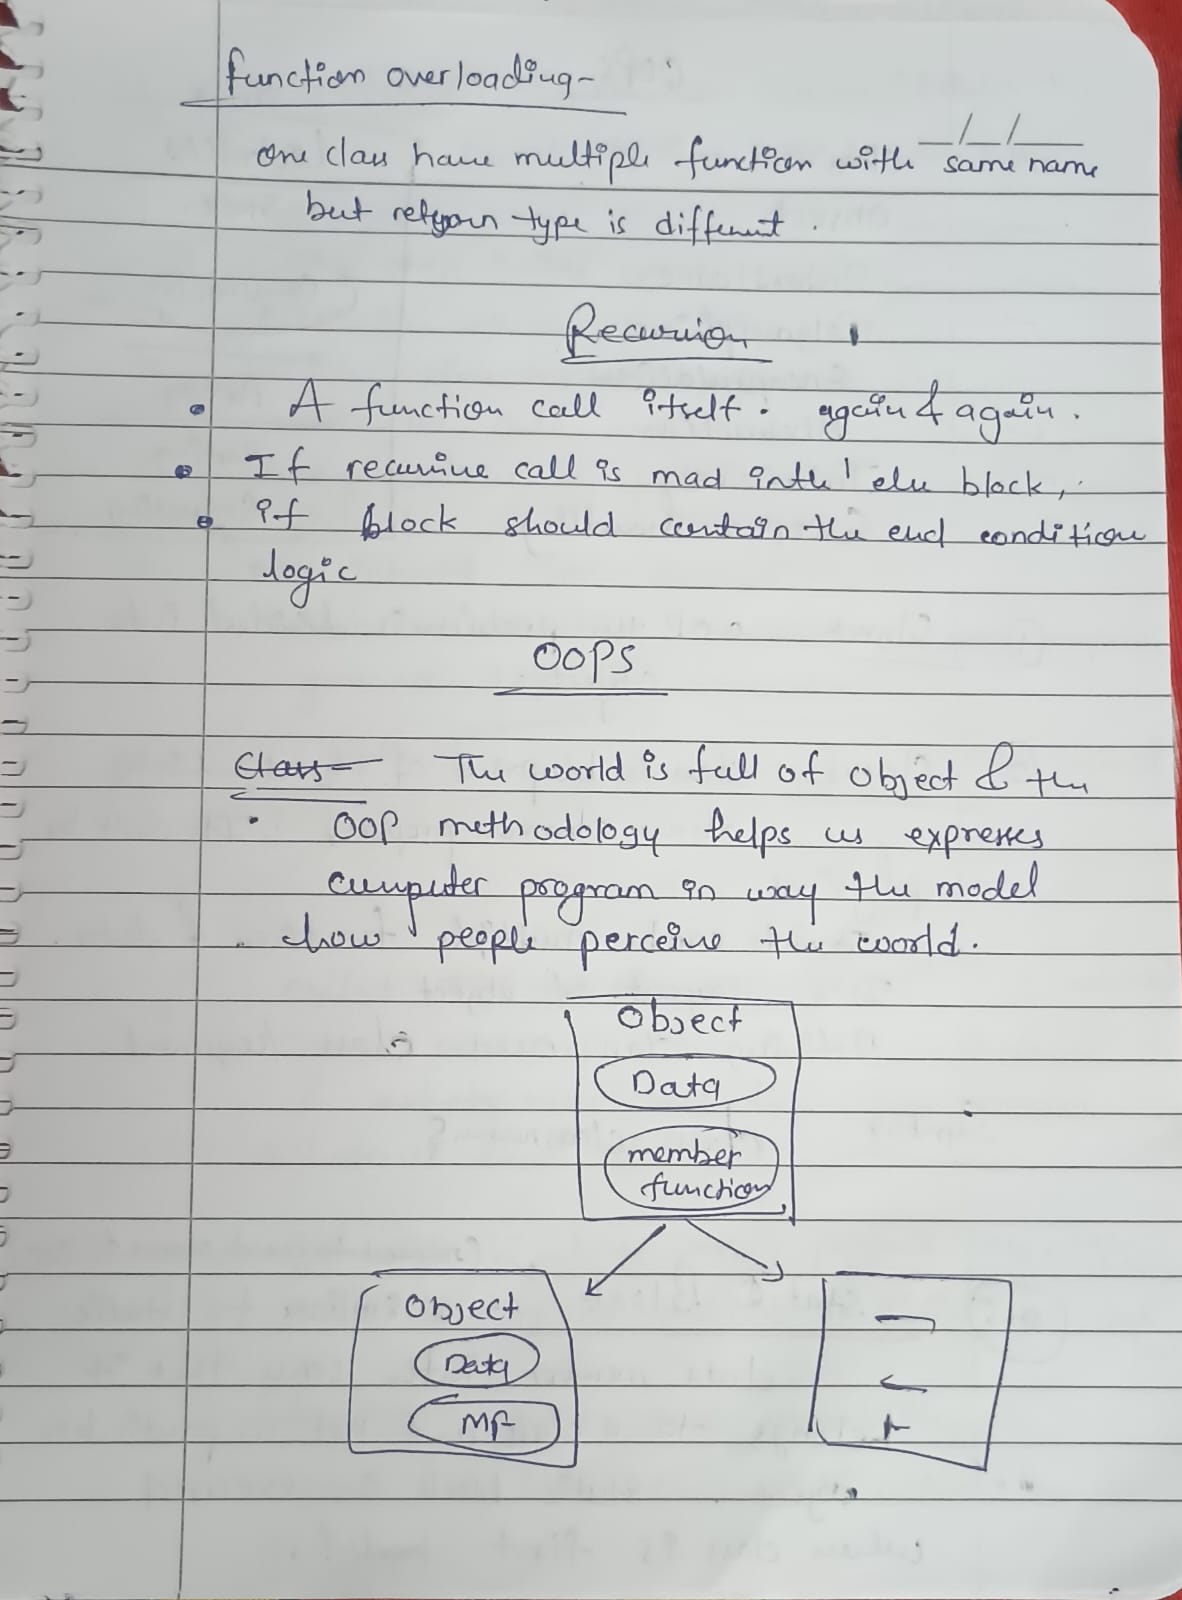 function overloading-
one class have multiple function with same name
but retyorn type is different .
Recursion
A function call itself. again & again.
If recursive call is mad in the else block,
if block should contain the end condition
logic
OOPS
Class The world is full of object & the
OOP methodology helps us expresses
computer program in way the model
how people perceive the world.
Object
Data
member
function
Object
Data
MF